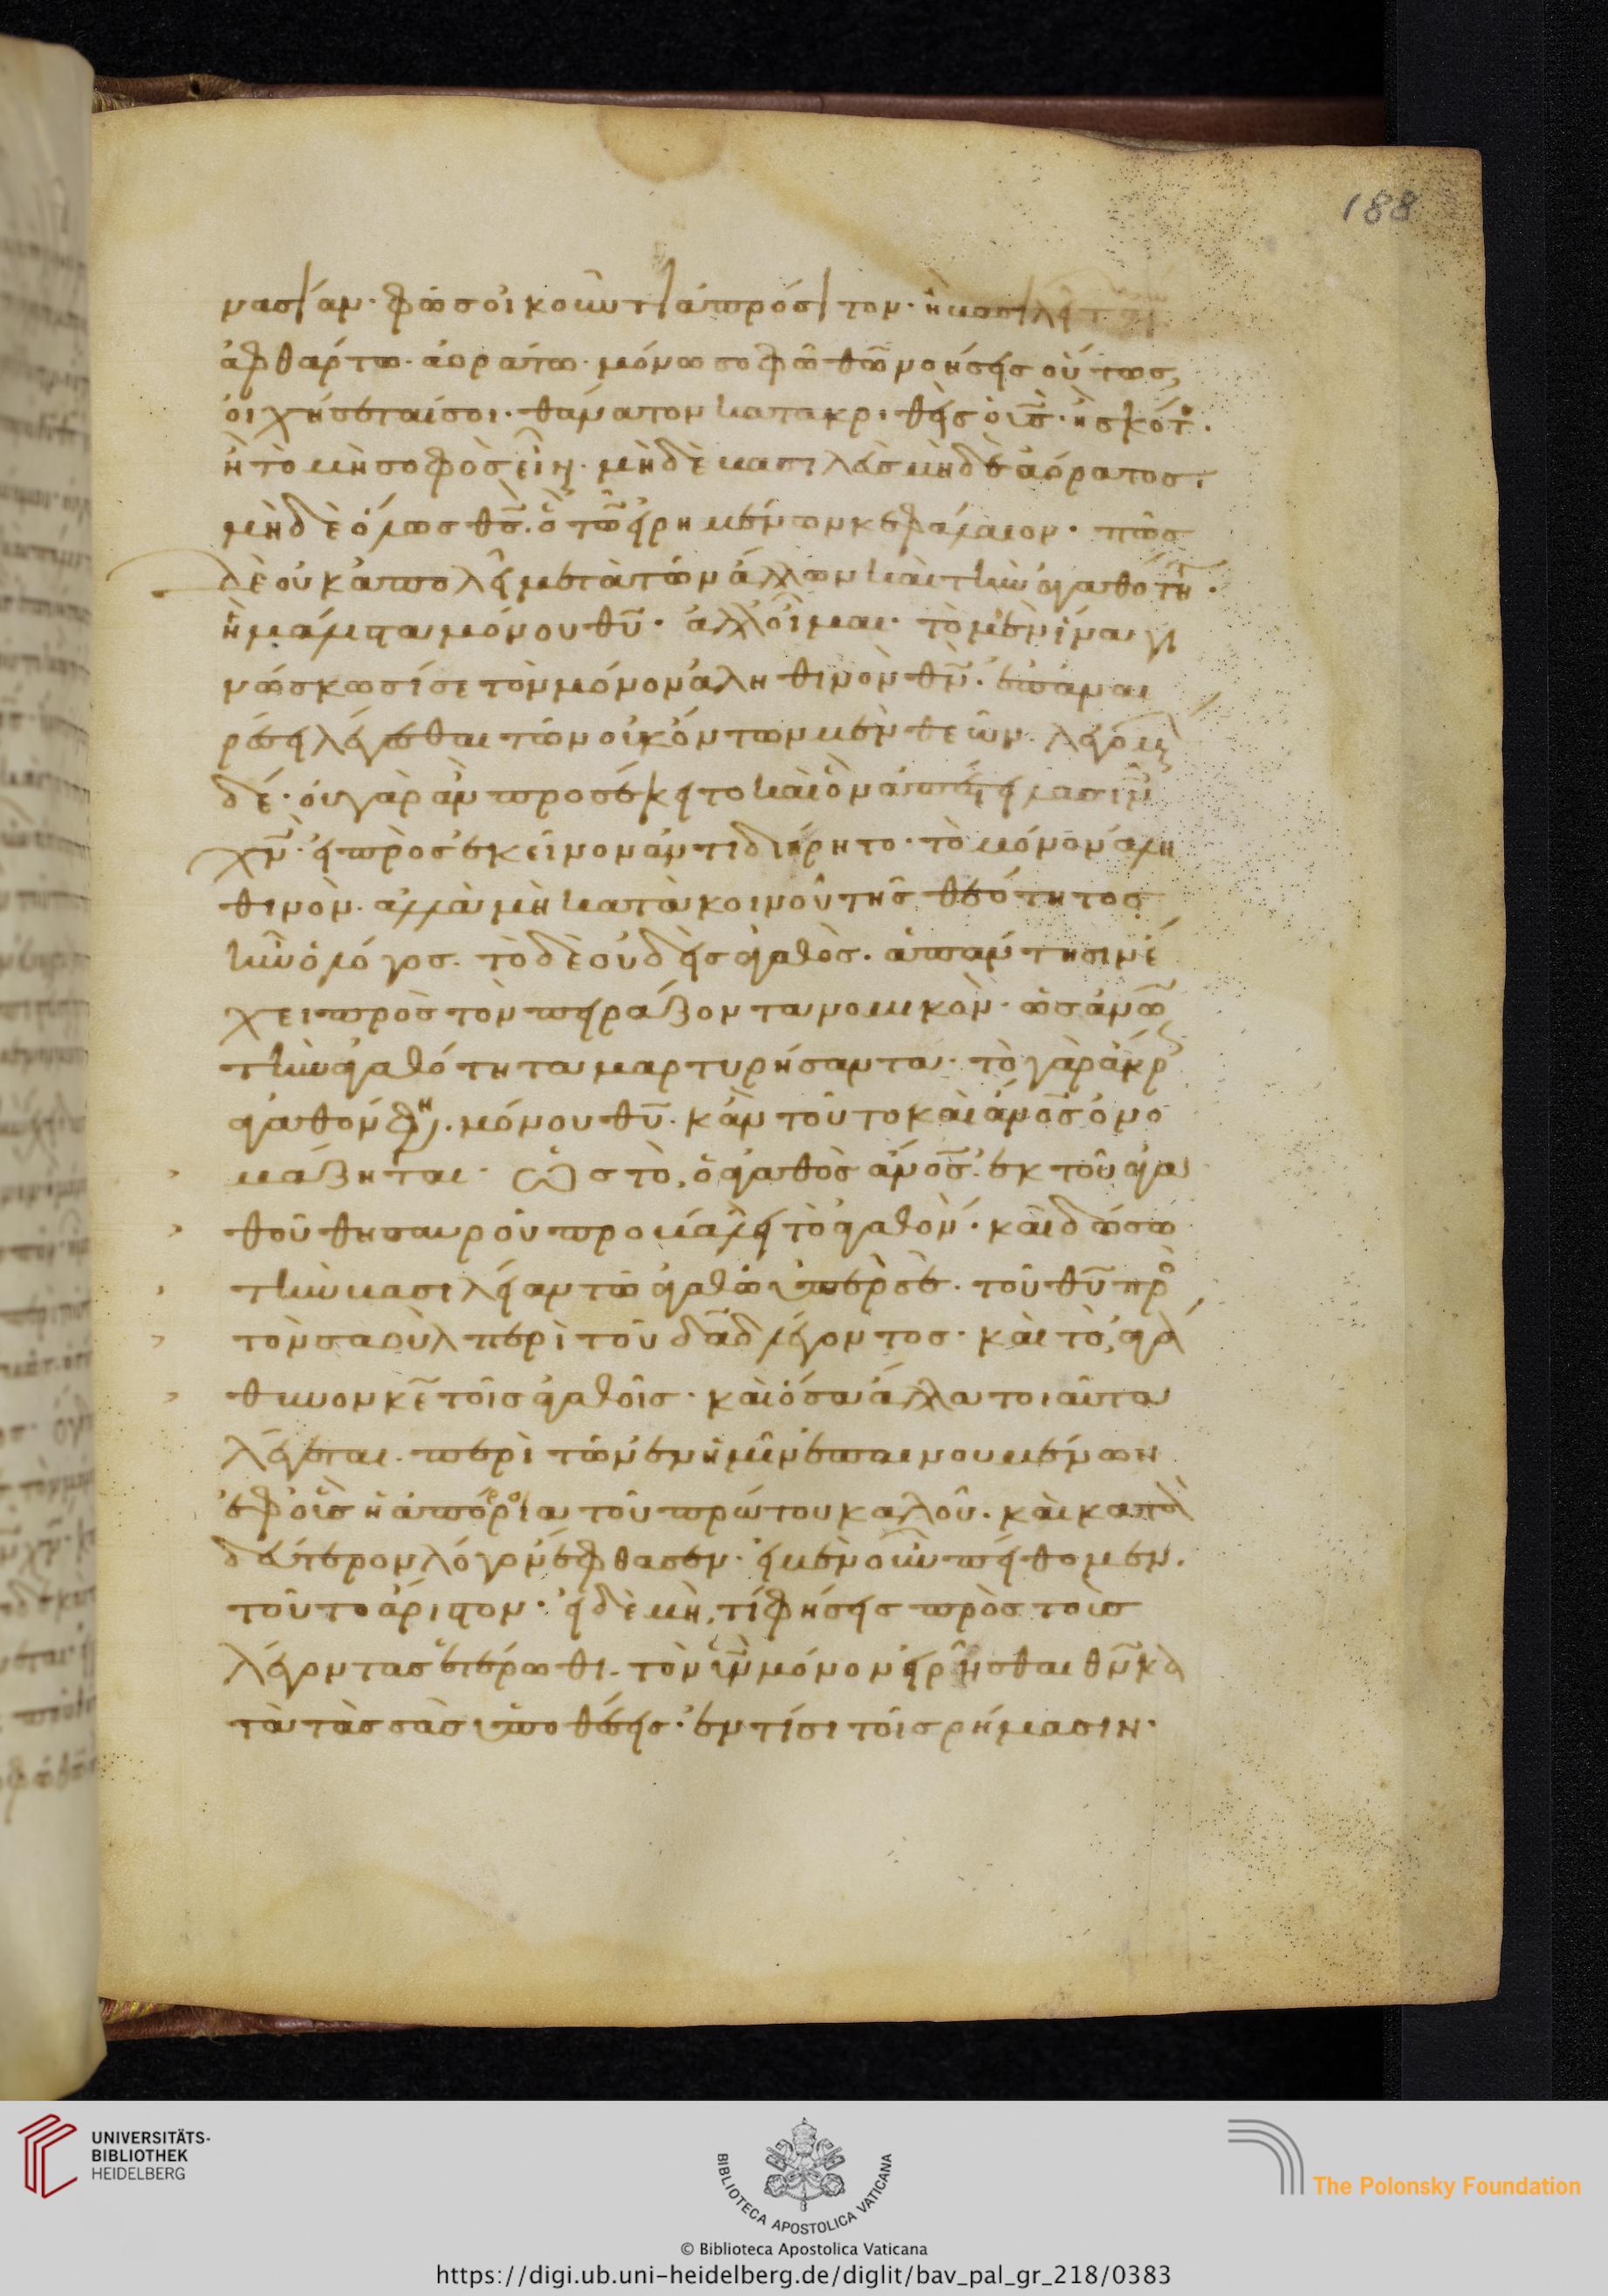 νασίαν· φῶς οἰκοῦντι ἀπρόσιτον· ἢ βασιλεῖ
ἀφθάρτω· ἀοράτω· μόνω σοφῶ θῶ νοήσεις οὕτως,
οἰχήσεταί σοι· θάνατον κατακριθεὶς ὁ υἱς· ἢ σκότ·
ἢ τὸ μὴ σοφὸς εἶν· μηδὲ βασιλεὺς μηδὲ ἀόρατος·
μηδὲ ὅλως θς· ὃ τῶ εἰρημένων κεφάλαιον· πῶς
δὲ οὐκ ἀπολεῖ μετὰ τῶν ἄλλων καὶ τὴν ἀγαθότη·
ἣ μάλιστα μόνου θυ· ἀλλ' οἶμαι· τὸ μὲν ἵνα γι
νώσκωσί σε τὸν μόνον ἀληθινὸν θν· ἐπ' ἀναι
ρέσει λέγεσθαι τῶν οὐκ ὄντων μὲν θεῶν· λεγομ
δέ· οὐ γὰρ ἂν προσέκειτο καὶ ὃν ἀπέστειλας ιν
χν· εἰ πρὸς ἐκεῖνον ἀντιδιήρητο· τὸ μόνον ἀλη
θινὸν· ἀλλὰ μὴ κατὰ κοινοῦ τῆς θεότητος
ἦν ὁ λόγος· τὸ δὲ οὐδεὶς ἀγαθὸς· ἀπάντησιν ἔ
χει πρὸς τὸν πειράζοντα νομικὸν· ὡς ἀνω
τὴν ἀγαθότητα μαρτυρήσαντα· τὸ γὰρ ἄκρ
ἀγαθόν φη· μόνου θυ· κἂν τοῦτο καὶ ἄνος ὀνο
μάζηται· ὡς τὸ, ὁ ἀγαθὸς ἄνος· ἐκ τοῦ ἀγα
θοῦ θησαυροῦ προβάλει τὸ ἀγαθὸν· καὶ δώσω
τὴν βασιλείαν τῶ ἀγαθῶ ὑπὲρ σὲ· τοῦ θυ πρὸ
τὸν σαοὺλ περὶ τοῦ δαδ λέγοντος· καὶ τὸ, ἀγά
θυνον κε τοῖς ἀγαθοῖς· καὶ ὅσα ἄλλα τοιαῦτα
λέγεται· περὶ τῶν ἐν ἡμῖν ἐπαινουμένων
ἐφ' οἷς ἡ ἀπόρροια τοῦ πρώτου καλοῦ· καὶ κατὰ
δεύτερον λόγον ἔφθασεν· εἰ μὲν οὖν πείθομεν·
τοῦτο ἄριστον· εἰ δὲ μὴ, τί φήσεις πρὸς τοὺς
λέγοντας ἑτέρωθι· τὸν υἱν μόνον εἰρῆσθαι θν κα
τὰ τὰς σὰς ὑποθέσεις· ἐν τίσι τοῖς ρήμασιν·
188
UNIVERSITÄTS-
BIBLIOTHEK
HEIDELBERG
BIBLIOTECA APOSTOLICA VATICANA
The Polonsky Foundation
© Biblioteca Apostolica Vaticana
https://digi.ub.uni-heidelberg.de/diglit/bav_pal_gr_218/0383